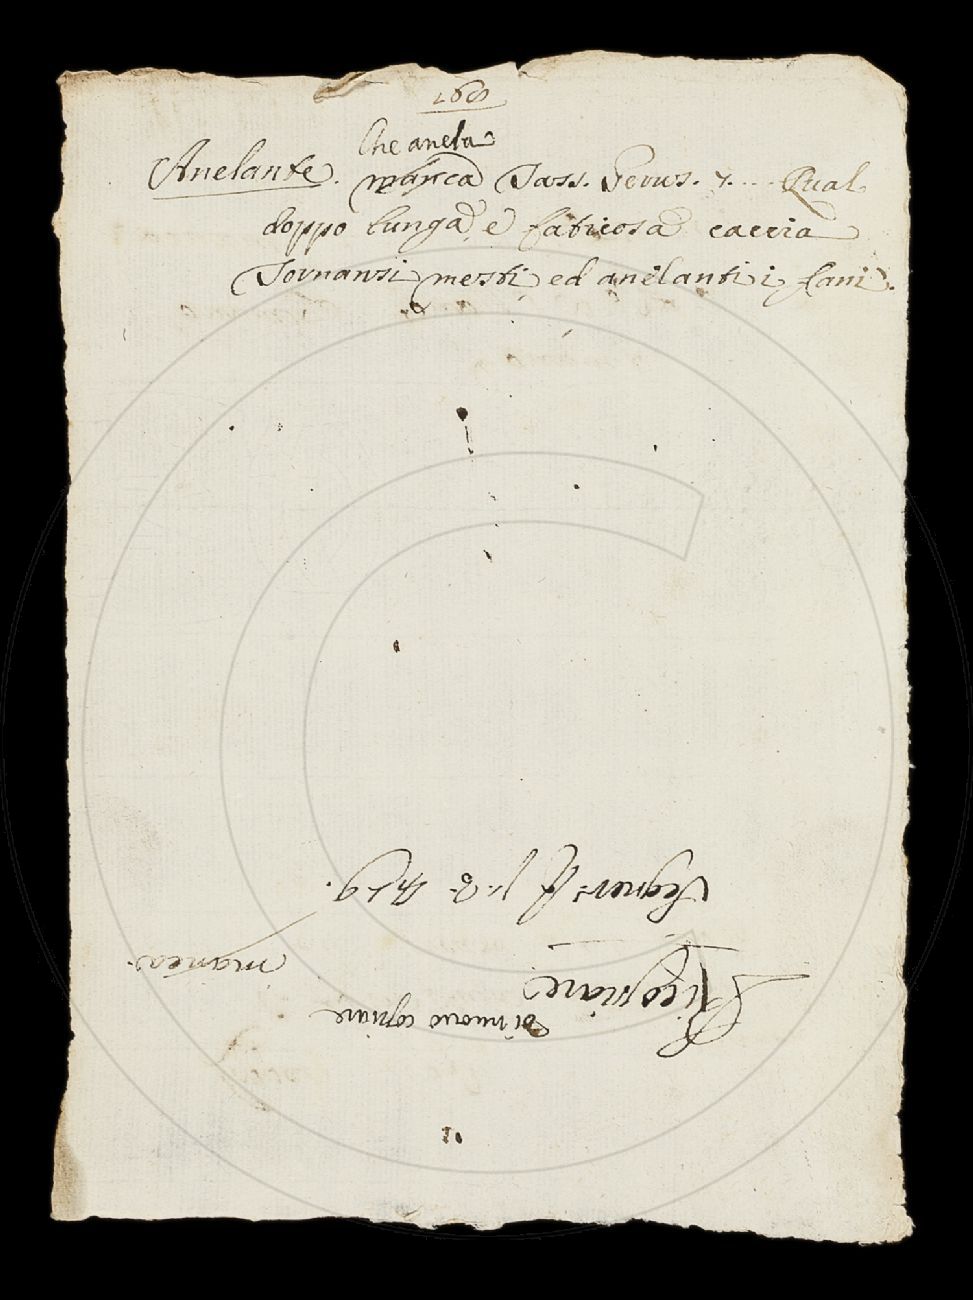 Che anela
Anelante. manca Tass. Gerus. 7.... Qual
doppo lunga, e faticosa caccia
Tornansi mesti ed anelanti i Cani.
Ricopiare
di nuovo copiare
manca